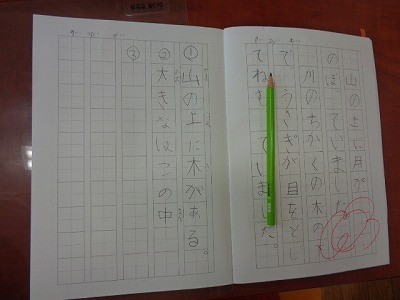 山の上に月が
のぼっていました
川のちかくの木の
で、うさぎが目をとじ
てね ていました。
①山の上に木がある。
②大きなはこの中
③